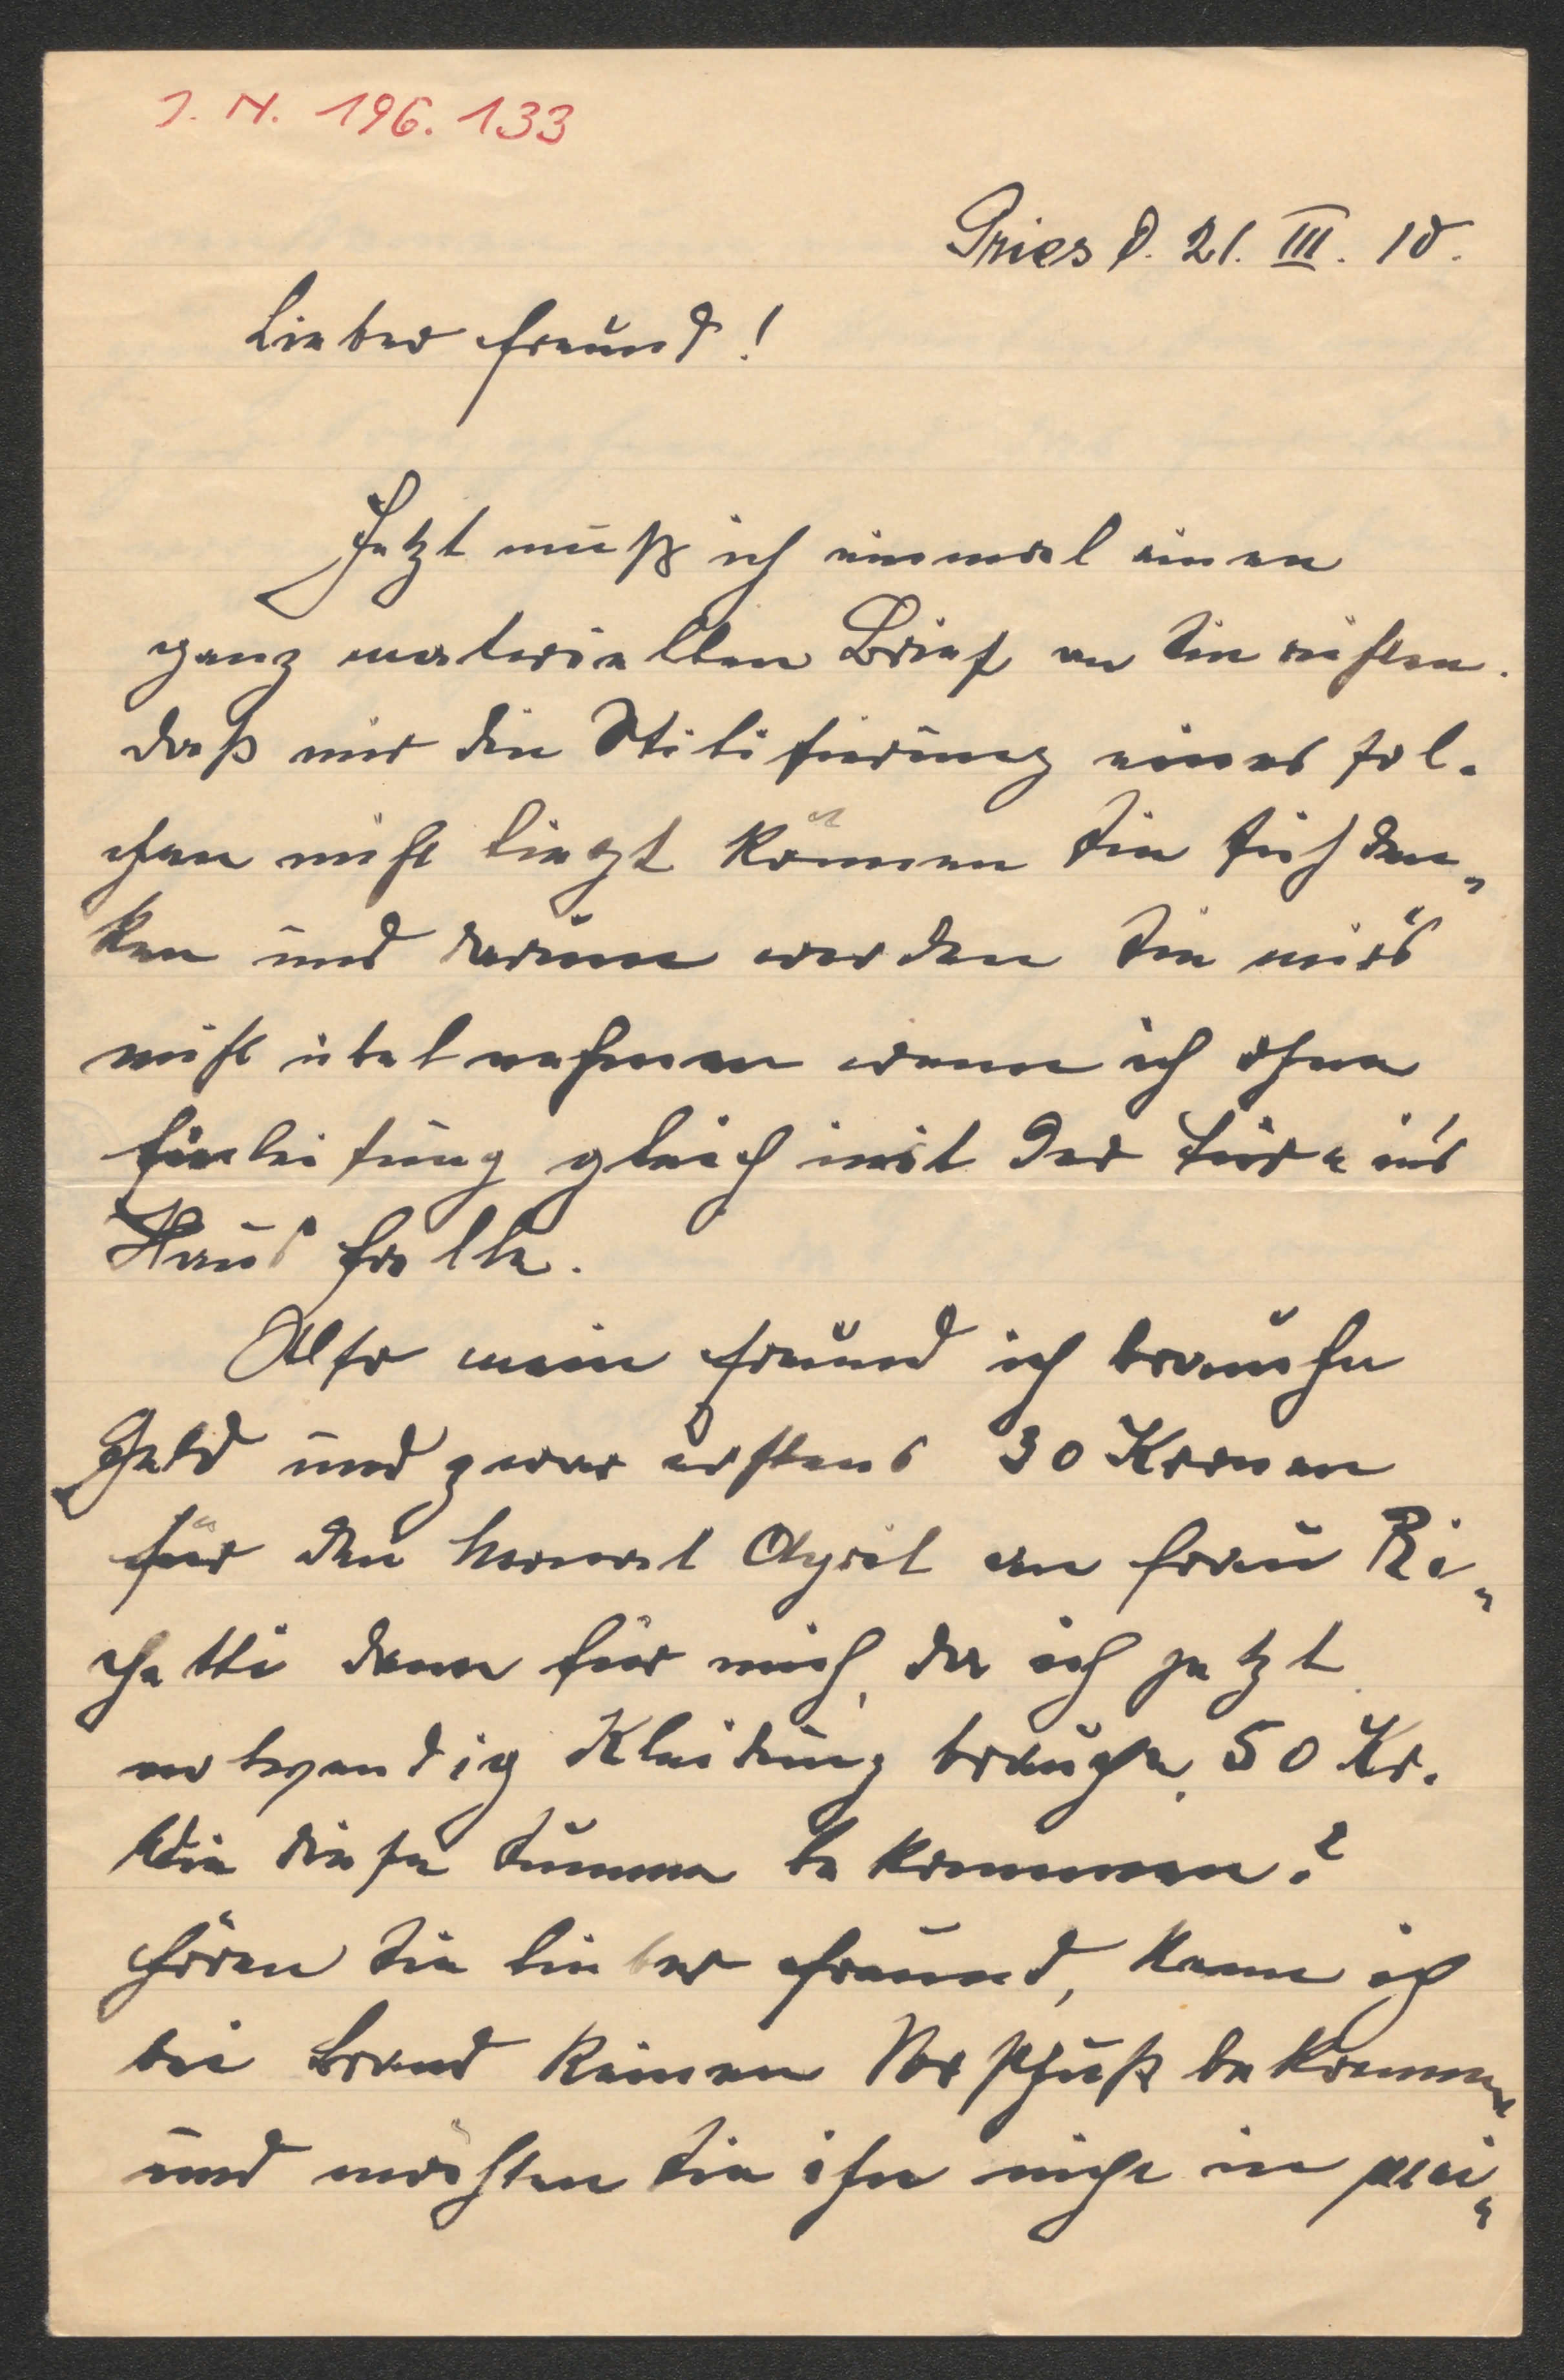 J. N. 196.133
Gries d. 21. III. 10.
Lieber Freund!
Jetzt muß ich einmal einen
ganz materiellen Brief an Sie richten.
daß mir die Stilisierung eines sol-
chen nicht liegt können Sie sich den„
ken und darum werden Sie mir's
nicht übel nehmen wenn ich ohne
Einleitung gleich mit der Türe in's
Haus falle.
Also mein Freund ich brauche
Geld und zwar erstens 30 Kronen
für den Monat April an Frau Ri„
chetti dann für mich, da ich jetzt
notwendig Kleidung brauche, 50 Kr.
Wie diese Summe bekommen?
Hören Sie lieber Freund, kann ich
bei Brand keinen Vorschuß bekommen
und möchten Sie ihn nicht in mei„